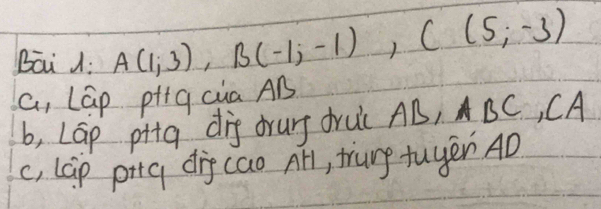 Bài 1: A(1;3), B(-1;-1), C (5;-3)
a, Lập pttq của AB
b, Lập pttq đg trung trực AB, BC, CA
c, lập pttq đg cao AH, trung tuyến AD